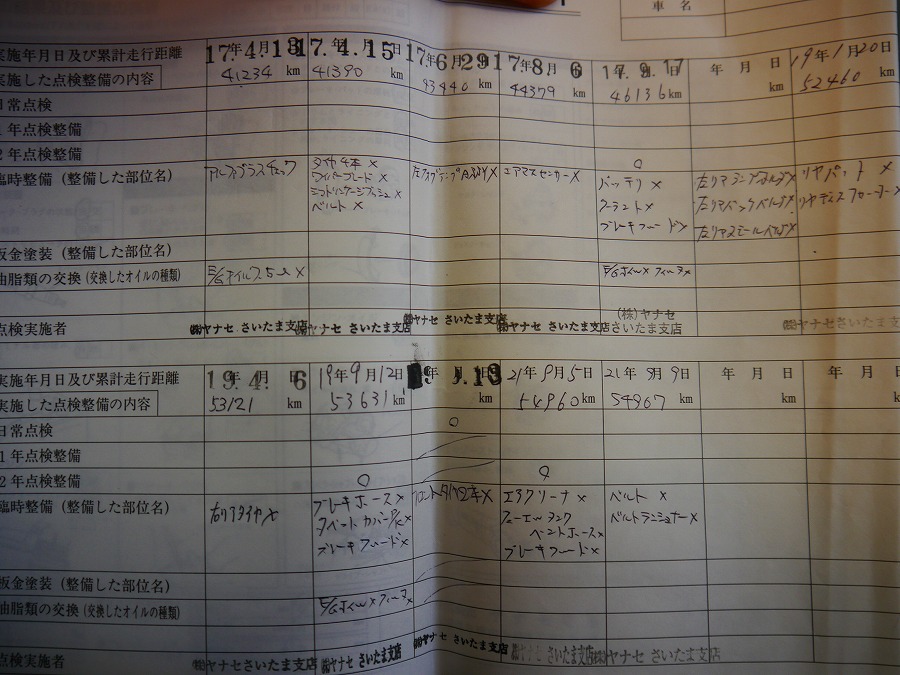 車名
実施年月日及び累計走行距離 17年4月13日 17.4.15日 17年6月29日 17年8月6日 17.9.17日 年 月 日 19年1月20日
実施した点検整備の内容 41234 km 41390 km 43440 km 44379 km 46136 km km 52460 km
日常点検
1年点検整備
2年点検整備 ○
臨時整備 (整備した部位名)
タイヤ4本 ×
ワイパーブレード ×
ベルト ×
エアマスセンサー×
バッテリ ×
クーラント×
ブレーキフルード×
リヤパット ×
板金塗装 (整備した部位名)
油脂類の交換 (交換したオイルの種類)
点検実施者 (株)ヤナセ さいたま支店 (株)ヤナセ さいたま支店 (株)ヤナセ さいたま支店 (株)ヤナセ さいたま支店 (株)ヤナセ さいたま支店 (株)ヤナセ さいたま支店
実施年月日及び累計走行距離 19年4月6日 19年9月12日 年 月 日 21年9月5日 21年9月9日 年 月 日 年 月 日
実施した点検整備の内容 53121 km 53631 km km 54960 km 54967 km km km
日常点検 ○
1年点検整備
2年点検整備 ○ ○
臨時整備 (整備した部位名)
右リアタイヤ×
ブレーキホース×
タペットカバーP/K×
ブレーキフルード×
フロントタイヤ2本×
エアクリーナ ×
フューエルタンク
ベントホース×
ブレーキフルード×
ベルト ×
ベルトテンショナー×
板金塗装 (整備した部位名)
油脂類の交換 (交換したオイルの種類)
点検実施者 (株)ヤナセさいたま支店 (株)ヤナセ さいたま支店 (株)ヤナセ さいたま支店 (株)ヤナセ さいたま支店 (株)ヤナセ さいたま支店